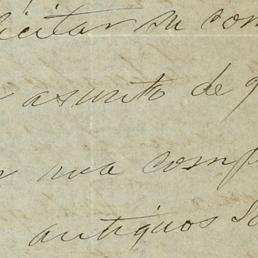 licitar su con
asunto de q
una comp
antiguos S